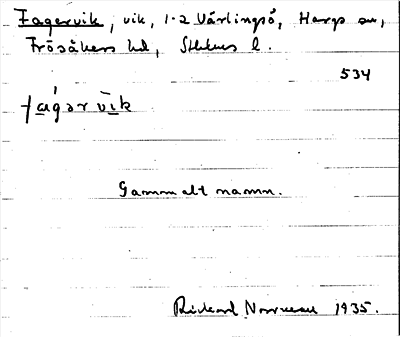 Fagervik, vik, 1-2 Vårlingsö, Hargs sn,
Frösåkers hd, Sthlms l.
534
fa̲gərvi̲k
Gammalt namn.
Rickard Norrman 1935.